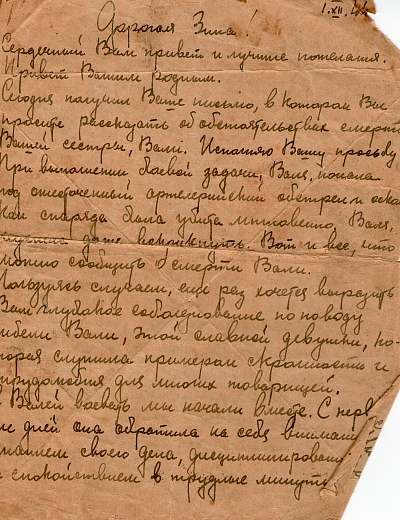 1.XII.44
Дорогая Зина!
Сердечный Вам привет и лучшие пожелания.
Привет Вашим родным.
Сегодня получил Ваше письмо, в котором Вы
просите рассказать об обстоятельствах смерти
Вашей сестры, Вали. Исполняю Вашу просьбу
При выполнении боевой задачи, Валя, попала
под ожесточенный артелерийский обстрел и оско
кой снаряда была убита мгновенно, Валя,
даже вскрикнуть. Вот и все, что
можно сообщить о смерти Вали.
Пользуясь случаем, еще раз хочется выразить
Вам глубокое соболезнование по поводу
гибели Вали, этой славной девушки, ко-
торая служила примером скромности и
трудолюбия для многих товарищей.
с Валей воевать мы начали вместе. С перв
ых дней она обратила на себя внимани
знанием своего дела, дисциплинирован
и спокойствием в трудные минуты